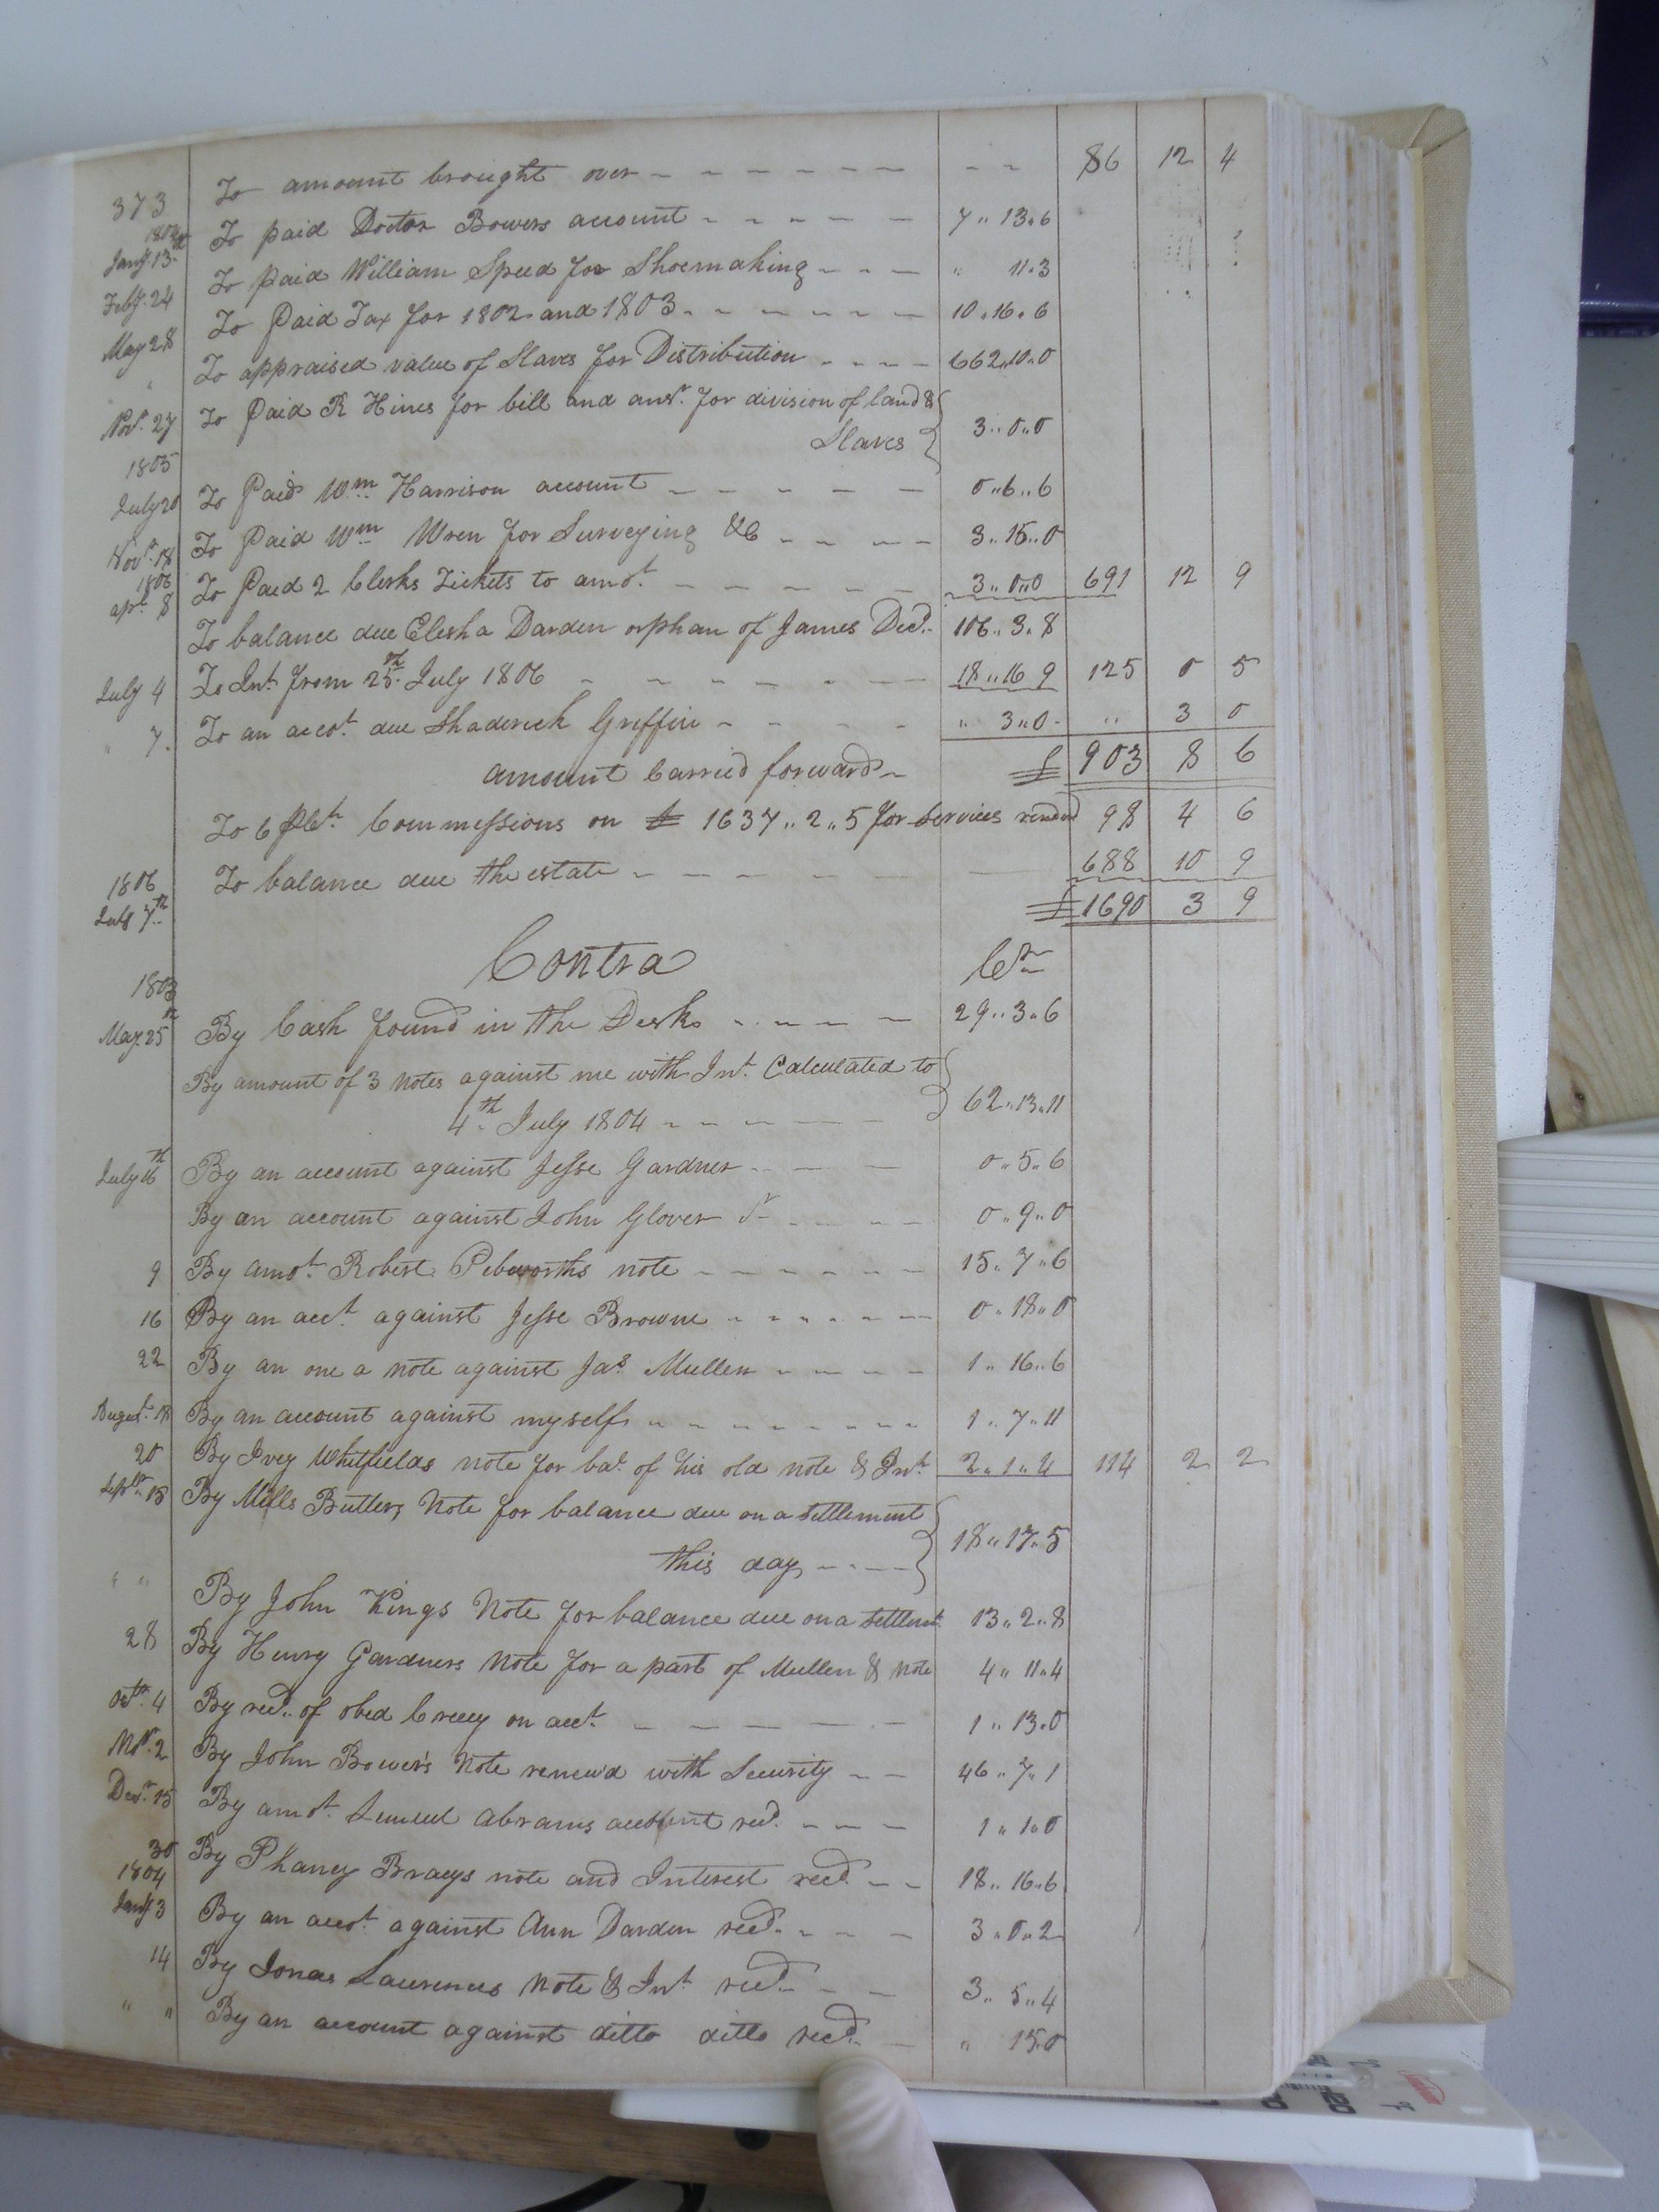 373 To amount brought over - - - - - - - - 86 12 4
1804
Jany 13th To paid Doctor Bowers account - - - - - 7 " 13 " 6
Feby 24 To paid William Speed for Shoemaking - - - " 11 " 3
May 28 To Paid Tax for 1802 and 1803 - - - - - - 10 " 16 " 6
" To appraised value of Slaves for Distribution - - - - 662 " 10 " 0
Novr 27 To Paid R Hines for bill and answr for division of land &
Slaves } 3 " 0 " 0
1805
July 20 To Paid Wm Harrison account - - - - - 0 " 6 " 6
Novr 18 To Paid Wm Wren for Surveying &C - - - - 3 " 15 " 0
1806
apl 8 To Paid 2 Clerks Tickets to amot - - - - - 3 " 0 " 0 691 12 9
To balance due Elisha Darden orphan of James Decd 106 " 3 " 8
July 4 To Int from 25th July 1806 - - - - - - 18 " 16 9 125 0 5
" 7 To an accot due Shaderick Griffin - - - - " 3 " 0 - " 3 0
amount Carried forward - £ 903 8 6
To 6 pCt Commissions on £ 1637 " 2 " 5 for services rendered 98 4 6
1806
July 7th To balance due the estate - - - - - 688 10 9
£ 1690 3 9
Contra Cr
1803
May 25th By Cash found in the Desk - - - - - 29 " 3 " 6
By amount of 3 notes against me with Int Calculated to
4th July 1804 - - - - - - } 62 " 13 " 11
July 6th By an account against Jesse Gardner - - - 0 " 5 " 6
By an account against John Glover Sr - - - - 0 " 9 " 0
9 By amot Robert Pebworths note - - - - - - 15 " 7 " 6
16 By an acct against Jesse Browne - - - - - - 0 " 18 " 0
22 By an one a note against Jas Mullen - - - - 1 " 16 " 6
August 18 By an account against myself - - - - - - - 1 " 7 " 11
20 By Ivey Whitfields note for bal of his old note & Int 2 " 1 " 4 114 2 2
Septr 15 By Mills Butlers Note for balance due on a settlement
this day - - - - } 18 " 17 " 5
" " By John Kings Note for balance due on a settlemt 13 " 2 " 8
28 By Henry Gardners Note for a part of Mullen & Note 4 " 11 " 4
Octr 4 By recd of obed Creecy on acct - - - - - 1 " 13 " 0
Novr 2 By John Bower's Note renewd with Security - - 46 " 7 " 1
Decr 15 By amot Lemuel Abrams account recd - - - 1 " 1 " 0
30 By Phaney Bracys note and Interest recd - - 18 " 16 " 6
1804
Jany 3 By an accot against Ann Darden recd - - - 3 " 0 " 2
14 By Jonas Laurences Note & Int recd - - 3 " 5 " 4
" " By an account against ditto ditto recd - " 15 " 0